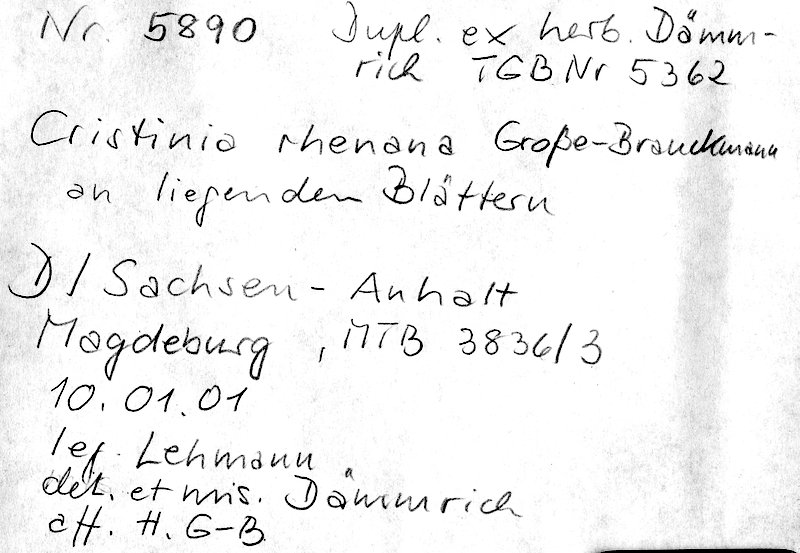 Nr. 5890 Dupl. ex herb. Dämm-
rich TGB.Nr 5362
Cristinia rhenana Große-Brauckmann
an liegenden Blättern
D/Sachsen-Anhalt
Magdeburg, MTB 3836/3
10.01.01
leg. Lehmann
det. et mis. Dämmrich
aff. H. G-B